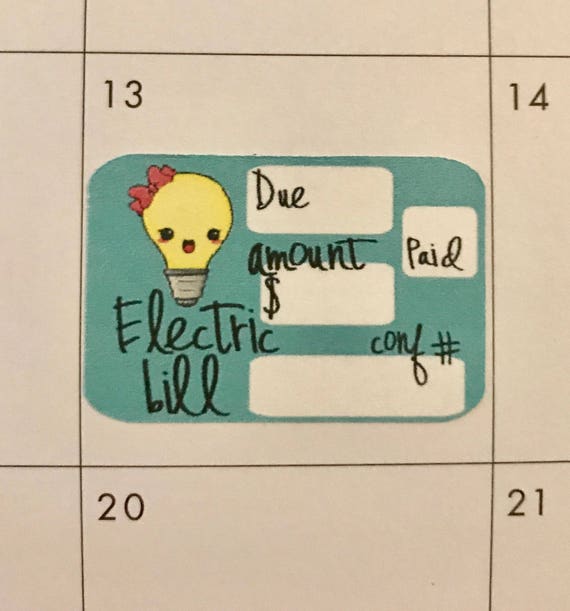 13
14
Due
amount
$
Paid
Electric
bill
conf #
20
21